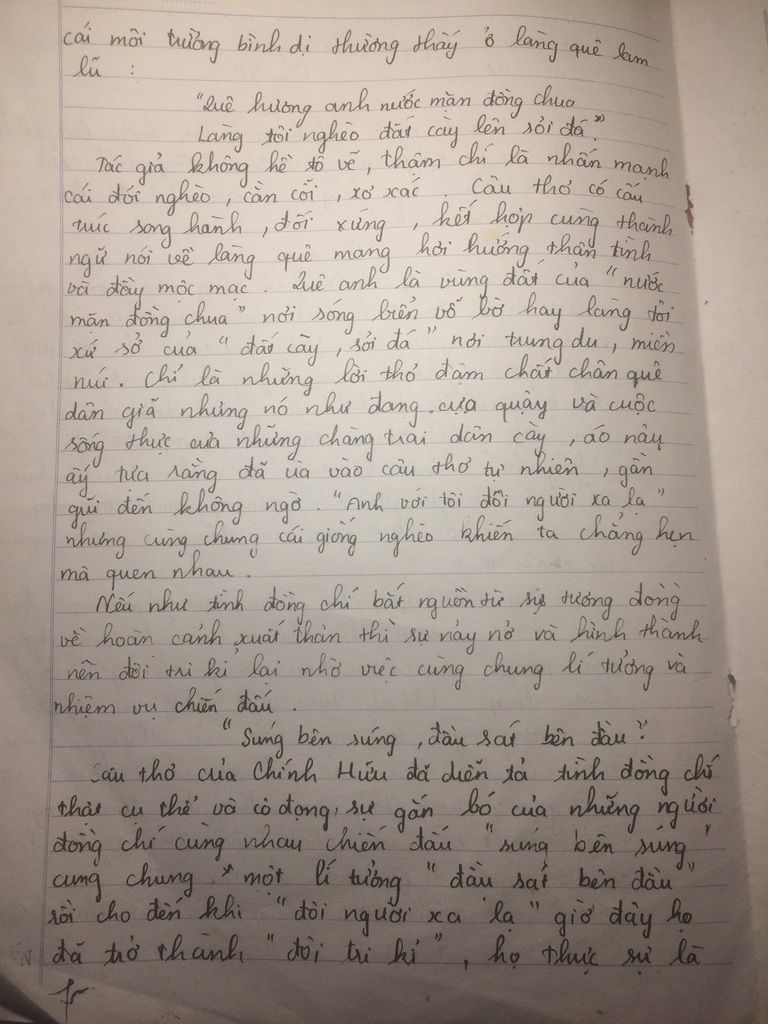 cái môi trường bình dị thường thấy ở làng quê lam
lũ :
"Quê hương anh nước mặn đồng chua
Làng tôi nghèo đất cày lên sỏi đá."
Tác giả không hề tô vẽ, thậm chí là nhấn mạnh
cái đói nghèo, cằn cỗi, xơ xác. Câu thơ có cấu
trúc song hành, đối xứng, kết hợp cùng thành
ngữ nói về làng quê mang hơi hướng thân tình
và đầy mộc mạc. Quê anh là vùng đất của "nước
mặn đồng chua" nơi sóng biển vỗ bờ hay làng tôi
xứ sở của "đất cày, sỏi đá" nơi trung du, miền
núi. Chỉ là những lời thơ đậm chất chân quê
dân giã nhưng nó như đang cựa quậy và cuộc
sống thực của những chàng trai dân cày, áo nâu
ấy tựa rằng đã ùa vào câu thơ tự nhiên, gần
gũi đến không ngờ. "Anh với tôi đôi người xa lạ"
nhưng cùng chung cái giống nghèo khiến ta chẳng hẹn
mà quen nhau.
Nếu như tình đồng chí bắt nguồn từ sự tương đồng
về hoàn cảnh xuất thân thì sự nảy nở và hình thành
nên đôi tri kỉ lại nhờ việc cùng chung lí tưởng và
nhiệm vụ chiến đấu.
"Súng bên súng, đầu sát bên đầu"
Câu thơ của Chính Hữu đã diễn tả tình đồng chí
thật cụ thể và cô đọng, sự gắn bó của những người
đồng chí cùng nhau chiến đấu "súng bên súng"
cùng chung một lí tưởng "đầu sát bên đầu"
rồi cho đến khi "đôi người xa lạ" giờ đây họ
đã trở thành "đôi tri kỉ", họ thực sự là